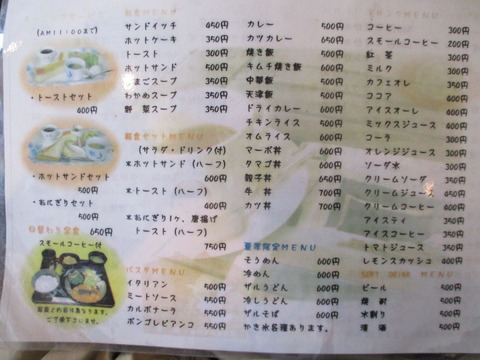 (AM11:00まで)
・トーストセット
400円
・ホットサンドセット
500円
・おにぎりセット
500円
日替わり定食 650円
スモールコーヒー付
軽食MENU
サンドイッチ 450円
ホットケーキ 350円
トースト 300円
ホットサンド 500円
たまごスープ 350円
わかめスープ 350円
野菜スープ 350円
軽食セットMENU
(サラダ・ドリンク付)
*ホットサンド (ハーフ)
600円
*トースト (ハーフ)
500円
*おにぎり1ケ、唐揚げ
トースト (ハーフ)
750円
パスタMENU
イタリアン 500円
ミートソース 550円
カルボナーラ 550円
ボンゴレビアンコ 550円
カレー 500円
カツカレー 650円
焼き飯 500円
キムチ焼飯 600円
中華飯 500円
天津飯 500円
ドライカレー 600円
チキンライス 500円
オムライス 600円
マーボ丼 600円
タマゴ丼 600円
親子丼 650円
牛丼 700円
カツ丼 700円
夏季限定MENU
そうめん 600円
冷めん 600円
ザルうどん 600円
冷しうどん 600円
ザルそば 600円
かき氷各種あります。
ドリンクMENU
コーヒー 300円
スモールコーヒー 200円
紅茶 300円
ミルク 300円
カフェオレ 350円
ココア 400円
アイスオーレ 400円
ミックスジュース 400円
コーラ 300円
オレンジジュース 300円
ソーダ水 300円
クリームソーダ 350円
クリームジュース 450円
クリームコーヒー 400円
アイスティ 350円
アイスコーヒー 350円
トマトジュース 350円
レモンスカッシュ 400円
SOFT DRINK MENU
ビール 500円
焼酎 500円
水割り 500円
清酒 500円